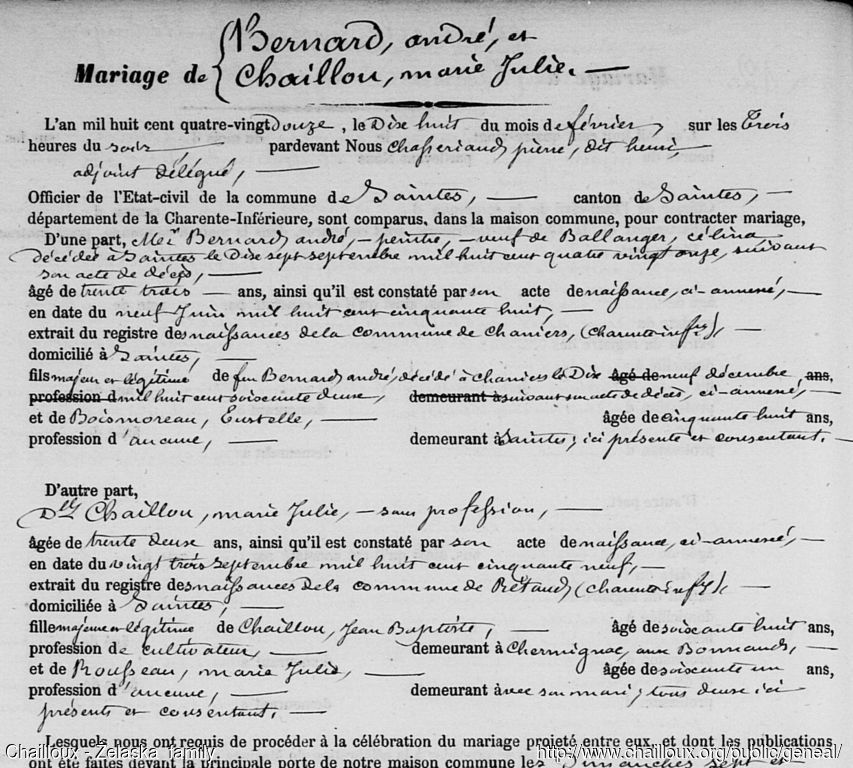 Mariage de { Bernard, andré, et
Chaillou, marie Julie. —
L'an mil huit cent quatre-vingt douze, le Dix huit du mois de février, sur les Trois
heures du soir, pardevant Nous Chasseriaud, pierre, dit henri,
adjoint délégué, —
Officier de l'Etat-civil de la commune de Saintes, — canton de Saintes, —
département de la Charente-Inférieure, sont comparus, dans la maison commune, pour contracter mariage,
D'une part, Mr Bernard, andré, — peintre, — veuf de Ballanger, célina
décédée à Saintes le Dix sept septembre mil huit cent quatre vingt onze, suivant
son acte de décès, —
âgé de trente trois — ans, ainsi qu'il est constaté par son acte de naissance, ci-annexé, —
en date du neuf Juin mil huit cent cinquante huit, —
extrait du registre des naissances de la commune de Chaniers, (charente infre), —
domicilié à Saintes, —
fils majeur et légitime de feu Bernard, andré, décédé à Chaniers le Dix âgé de neuf décembre ans,
profession d mil huit cent soixante deux, demeurant à suivant son acte de décès, ci-annexé, —
et de Boismoreau, Eustelle, — âgée de cinquante huit ans,
profession d'aucune, — demeurant à Saintes, ici présente et consentant. —
D'autre part,
Dlle Chaillou, marie Julie, — sans profession, —
âgée de trente deux ans, ainsi qu'il est constaté par son acte de naissance, ci-annexé, —
en date du vingt trois septembre mil huit cent cinquante neuf, —
extrait du registre des naissances de la commune de Rétaud (charente infre), —
domiciliée à Saintes, —
fille majeure et légitime de Chaillou, Jean Baptiste, — âgé de soixante huit ans,
profession de cultivateur, — demeurant à Chermignac, aux Bonnauds, —
et de Rousseau, marie Julie, — âgée de soixante un ans,
profession d'aucune, — demeurant avec son mari; tous deux ici
présents et consentant. —
Lesquels nous ont requis de procéder à la célébration du mariage projeté entre eux, et dont les publications
ont été faites devant la principale porte de notre maison commune les Dimanches sept et
Chailloux - Zelaska family http://www.chailloux.org/public/geneal/